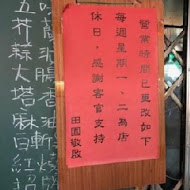 營業時間已更改如下
每週星期一、二為店
休日,感謝客官支持
田園敬啟
五芥蒜大塔麻白紹